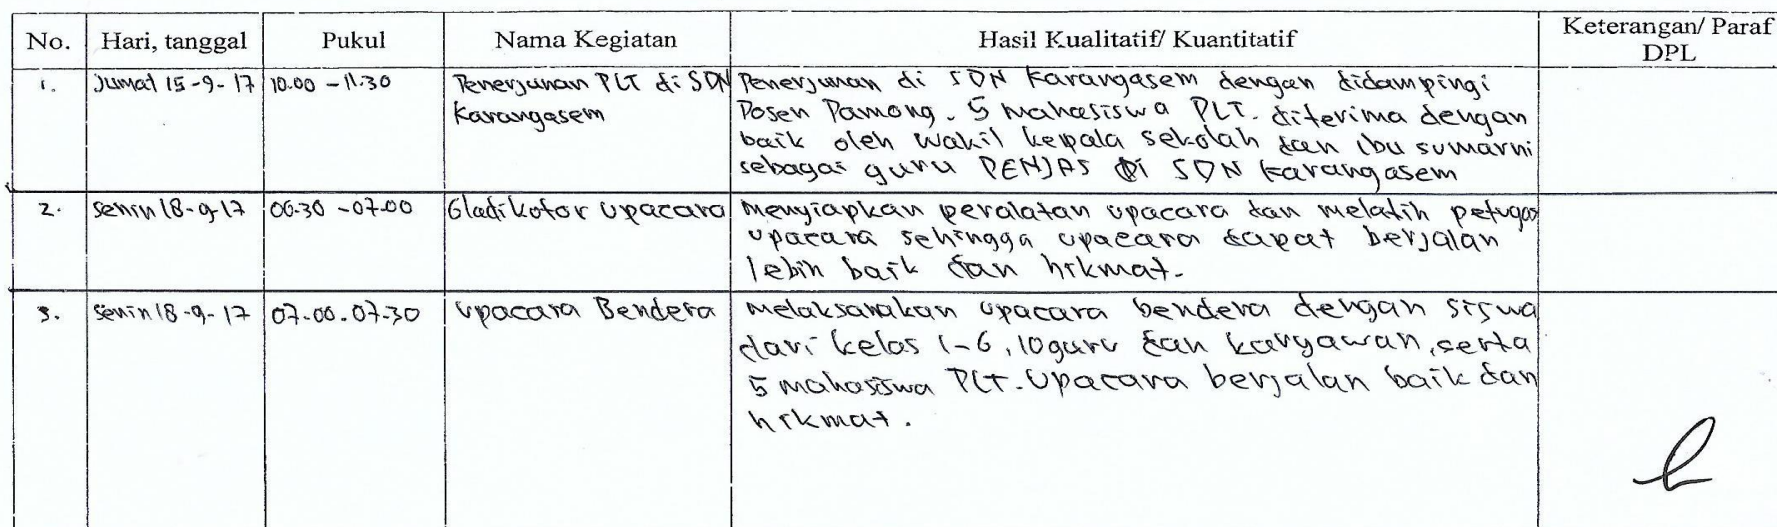 No. Hari, tanggal Pukul Nama Kegiatan Hasil Kualitatif/ Kuantitatif Keterangan/ Paraf DPL
1. Jumat 15-9-17 10.00 - 11.30 Penerjunan PLT di SDN Karangasem
Penerjunan di SDN Karangasem dengan didampingi
Dosen Pamong. 5 mahasiswa PLT. diterima dengan
baik oleh wakil kepala sekolah dan ibu sumarni
sebagai guru PENJAS di SDN Karangasem
2. Senin 18-9-17 06.30 - 07.00 Gladi kotor Upacara
Menyiapkan peralatan upacara dan melatih petugas
upacara sehingga upacara dapat berjalan
lebih baik dan hikmat.
3. Senin 18-9-17 07.00.07.30 Upacara Bendera
Melaksanakan upacara bendera dengan siswa
dari kelas 1-6, 10 guru dan karyawan, serta
5 mahasiswa PLT. Upacara berjalan baik dan
hikmat.